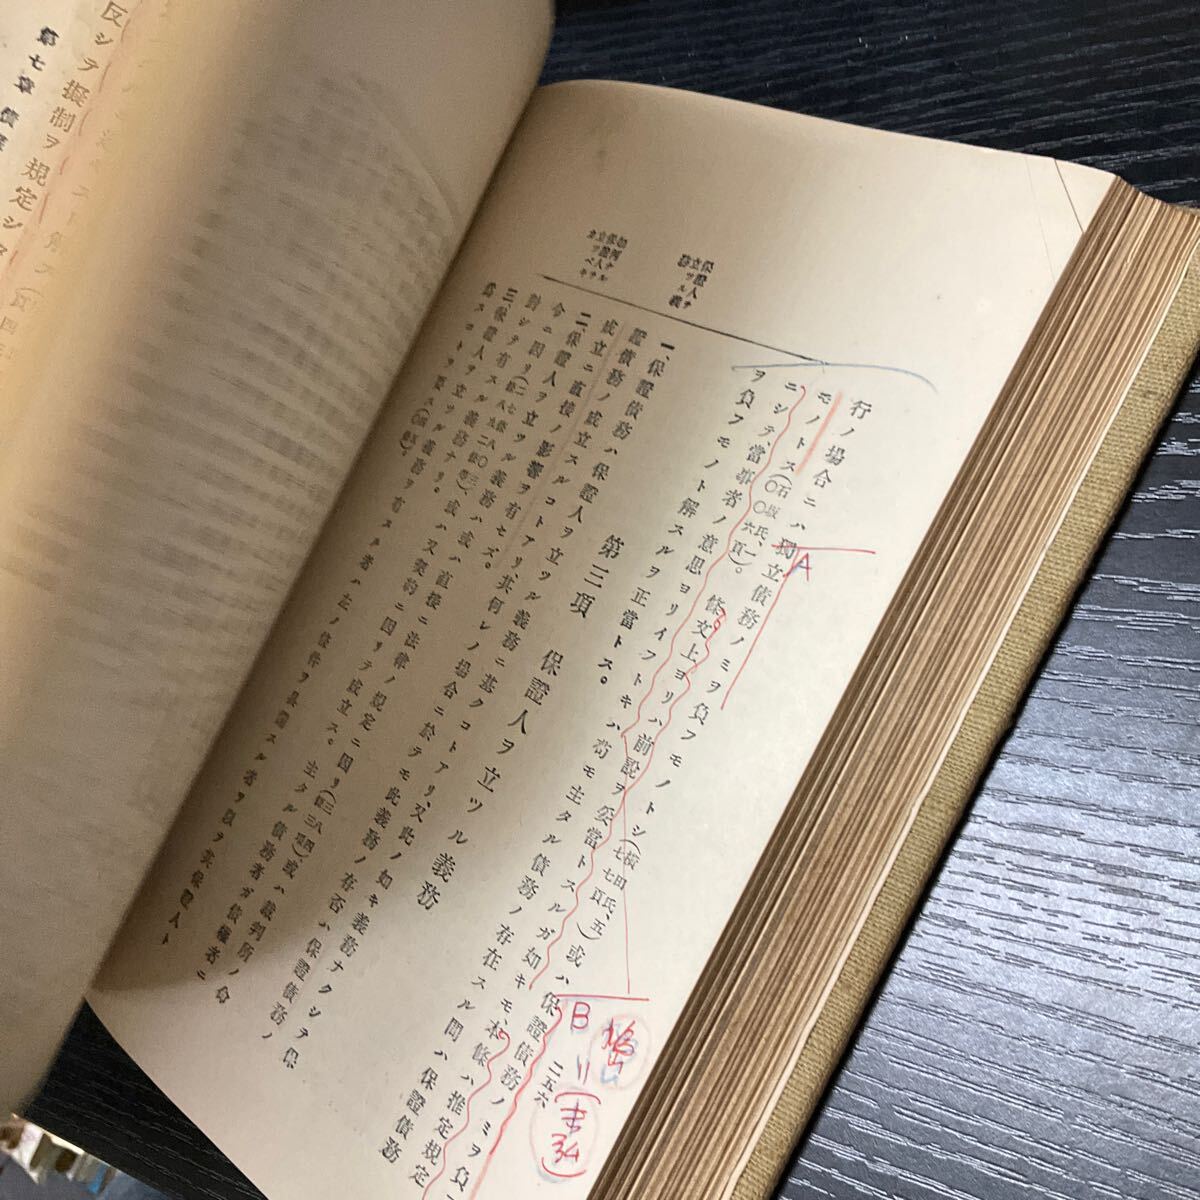 行ノ場合ニハ獨立債務ノミヲ負フモノトシ(横田氏、五七七頁)或ハ保證債務ノミヲ負フ
モノトス(石坂氏、一〇〇六頁)。條文上ヨリハ前說ヲ妥當トスルガ如キモ、本條ハ推定規定
ニシテ、當事者ノ意思ヨリイフトキハ苟モ主タル債務ノ存在スル間ハ保證債務
ヲ負フモノト解スルヲ正當トス。
第三項 保證人ヲ立ツル義務
一、保證債務ハ保證人ヲ立ツル義務ニ基クコトアリ、又此ノ如キ義務ナクシテ保
證債務ノ成立スルコトアリ、其何レノ場合ニ於テモ此義務ノ存否ハ保證債務ノ
成立ニ直接ノ影響ヲ有セズ。
二、保證人ヲ立ツル義務ハ或ハ直接ニ法律ノ規定ニ因リ或ハ裁判所ノ命
令ニ因リ或ハ又契約ニ因リテ成立ス。主タル債務者ガ債權者ニ
對シテ有スル義務ナリ。
三、保證人ヲ立ツル義務ヲ有スル者ハ左ノ條件ヲ具備スル者ヲ以テ其保證人ト
爲スコトヲ要ス
保證人ヲ立ツル義務
如何ナル保證人ヲ立ツベキカ
二五六
A
B
反シテ擬制ヲ規定シ
第七章 債